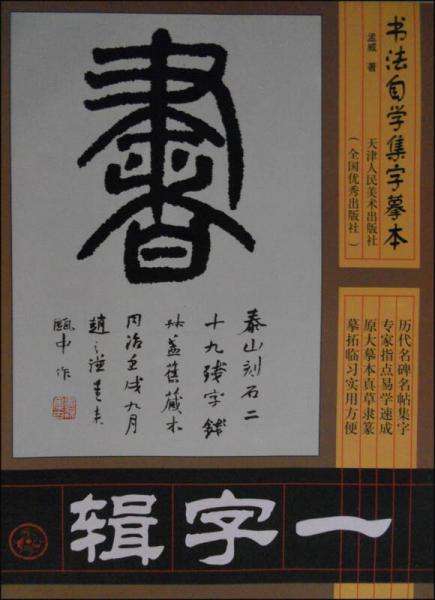 书法自学集字摹本
孟威 著
天津人民美术出版社
(全国优秀出版社)
历代名碑名帖集字
专家指点易学速成
原大摹本真草隶篆
摹拓临习实用方便
書
泰山刻石二
十九残字錢
叔蓋舊藏本
同治壬戌九月
趙之謙
甌中作
一字辑